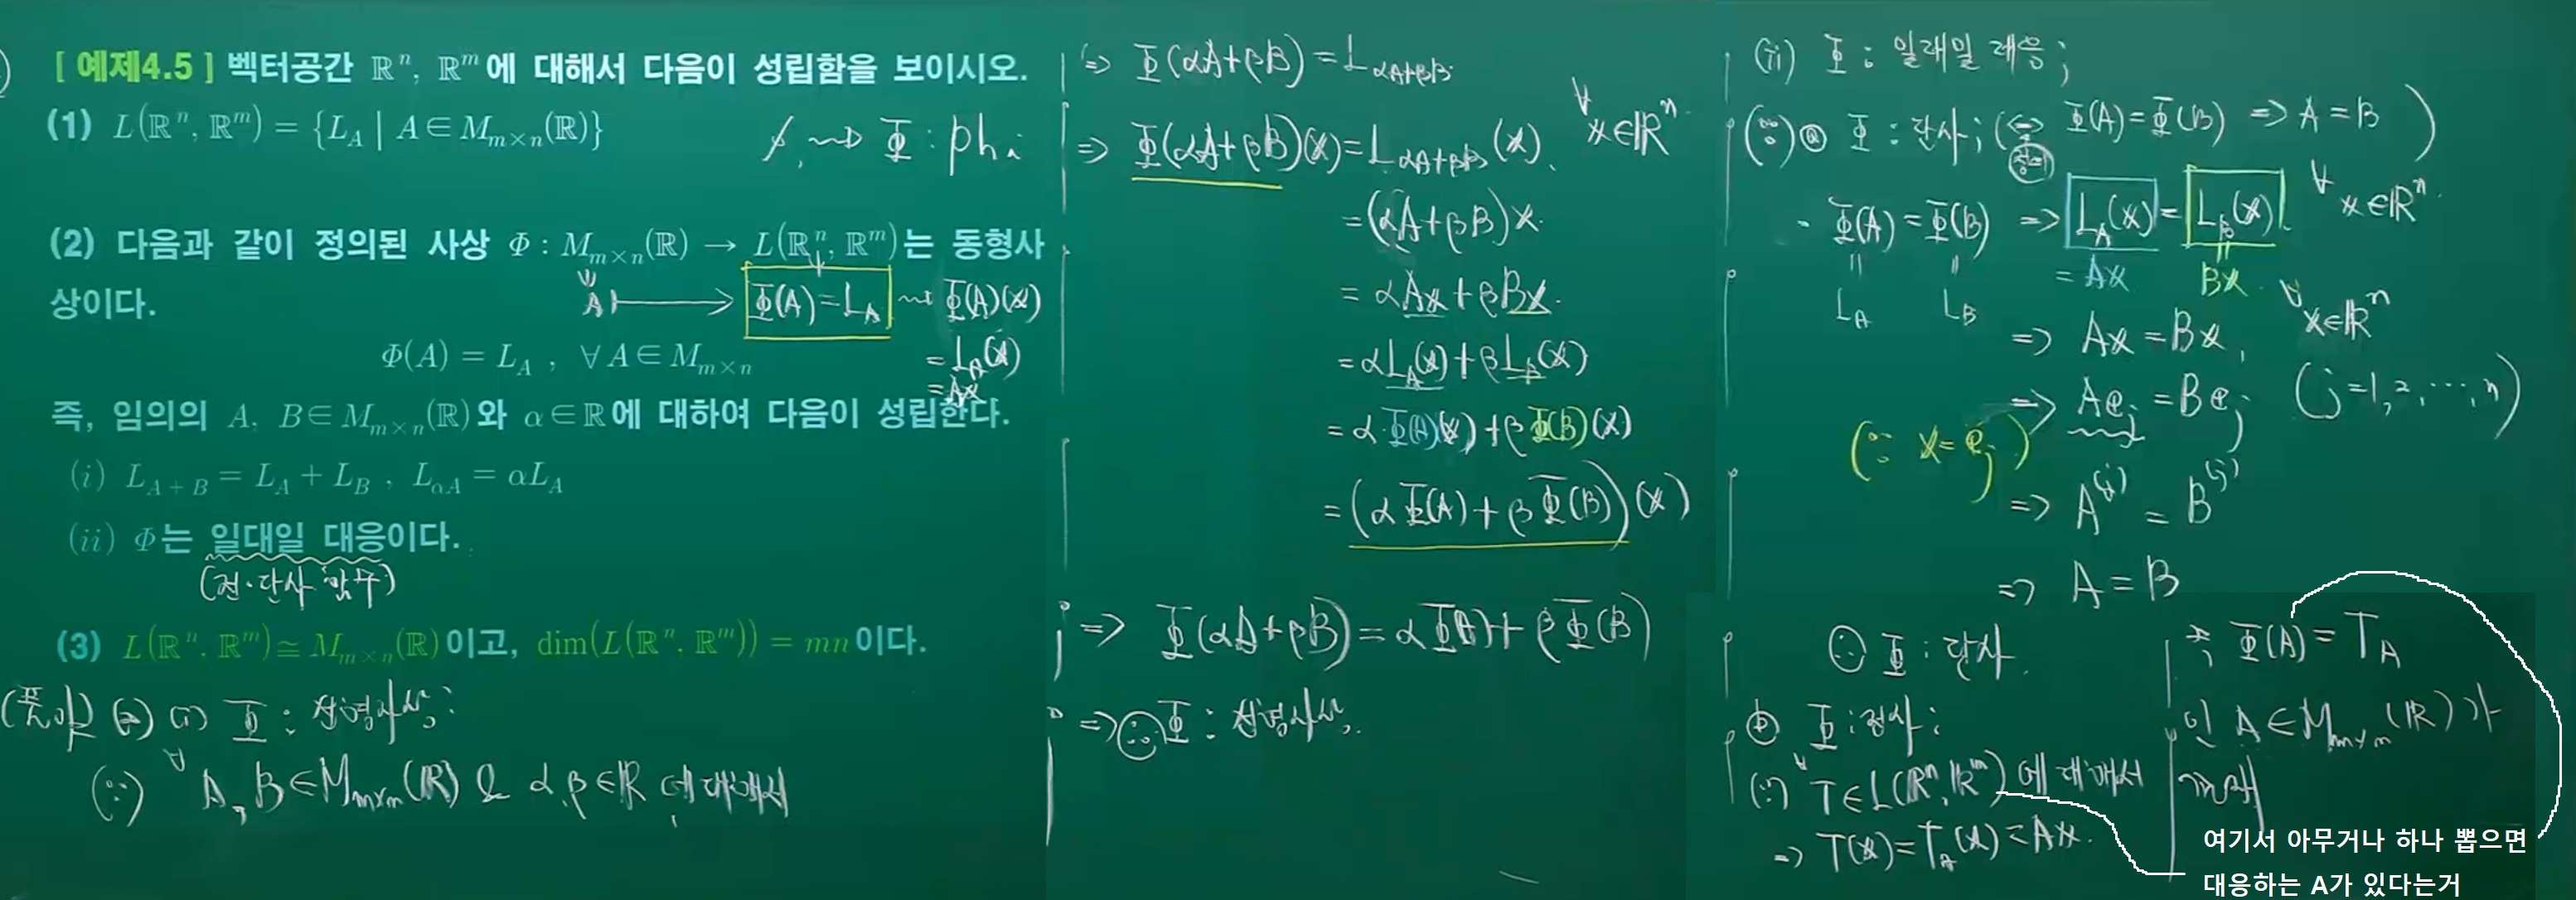 [ 예제4.5 ] 벡터공간 ℝⁿ, ℝᵐ에 대해서 다음이 성립함을 보이시오.
(1) L(ℝⁿ, ℝᵐ) = {L_A | A ∈ M_{m×n}(ℝ)}
∮ ⇝ Φ : phi
(2) 다음과 같이 정의된 사상 Φ : M_{m×n}(ℝ) → L(ℝⁿ, ℝᵐ)는 동형사
상이다.
A ⟼ Φ(A) = L_A ⇝ Φ(A)(x)
= L_A(x)
= Ax
Φ(A) = L_A , ∀A ∈ M_{m×n}
즉, 임의의 A, B ∈ M_{m×n}(ℝ)와 α ∈ ℝ에 대하여 다음이 성립한다.
(i) L_{A+B} = L_A + L_B , L_{αA} = αL_A
(ii) Φ는 일대일 대응이다.
(전·단사 함수)
(3) L(ℝⁿ, ℝᵐ) ≅ M_{m×n}(ℝ)이고, dim(L(ℝⁿ, ℝᵐ)) = mn이다.
(풀이) (2) (i) Φ : 선형사상;
(∵) ∀A, B ∈ M_{m×n}(ℝ) & α, β ∈ ℝ 에 대해서
⇒ Φ(αA+βB) = L_{αA+βB}
⇒ Φ(αA+βB)(x) = L_{αA+βB}(x), ∀x∈ℝⁿ
= (αA+βB)x
= αAx + βBx
= αL_A(x) + βL_B(x)
= α·Φ(A)(x) + βΦ(B)(x)
= (αΦ(A) + βΦ(B))(x)
⇒ Φ(αA+βB) = αΦ(A) + βΦ(B)
⇒ ∴ Φ : 선형사상.
(ii) Φ : 일대일 대응;
(∵) ⓐ Φ : 단사; (⇔ 정의 Φ(A) = Φ(B) ⇒ A = B)
- Φ(A) = Φ(B) ⇒ L_A(x) = L_B(x). ∀x∈ℝⁿ.
= Ax
Bx
L_A L_B
⇒ Ax = Bx, ∀x∈ℝⁿ
⇒ Ae_j = Be_j (j=1, 2, ⋯, n)
(∵ x = e_j)
⇒ A^{(j)} = B^{(j)}
⇒ A = B
∴ Φ : 단사.
ⓑ Φ : 전사;
(∵) ∀T∈L(ℝⁿ, ℝᵐ)에 대해서
⇒ T(x) = T_A(x) = Ax.
즉 Φ(A) = T_A
인 A ∈ M_{m×n}(ℝ)가
존재
여기서 아무거나 하나 뽑으면
대응하는 A가 있다는거